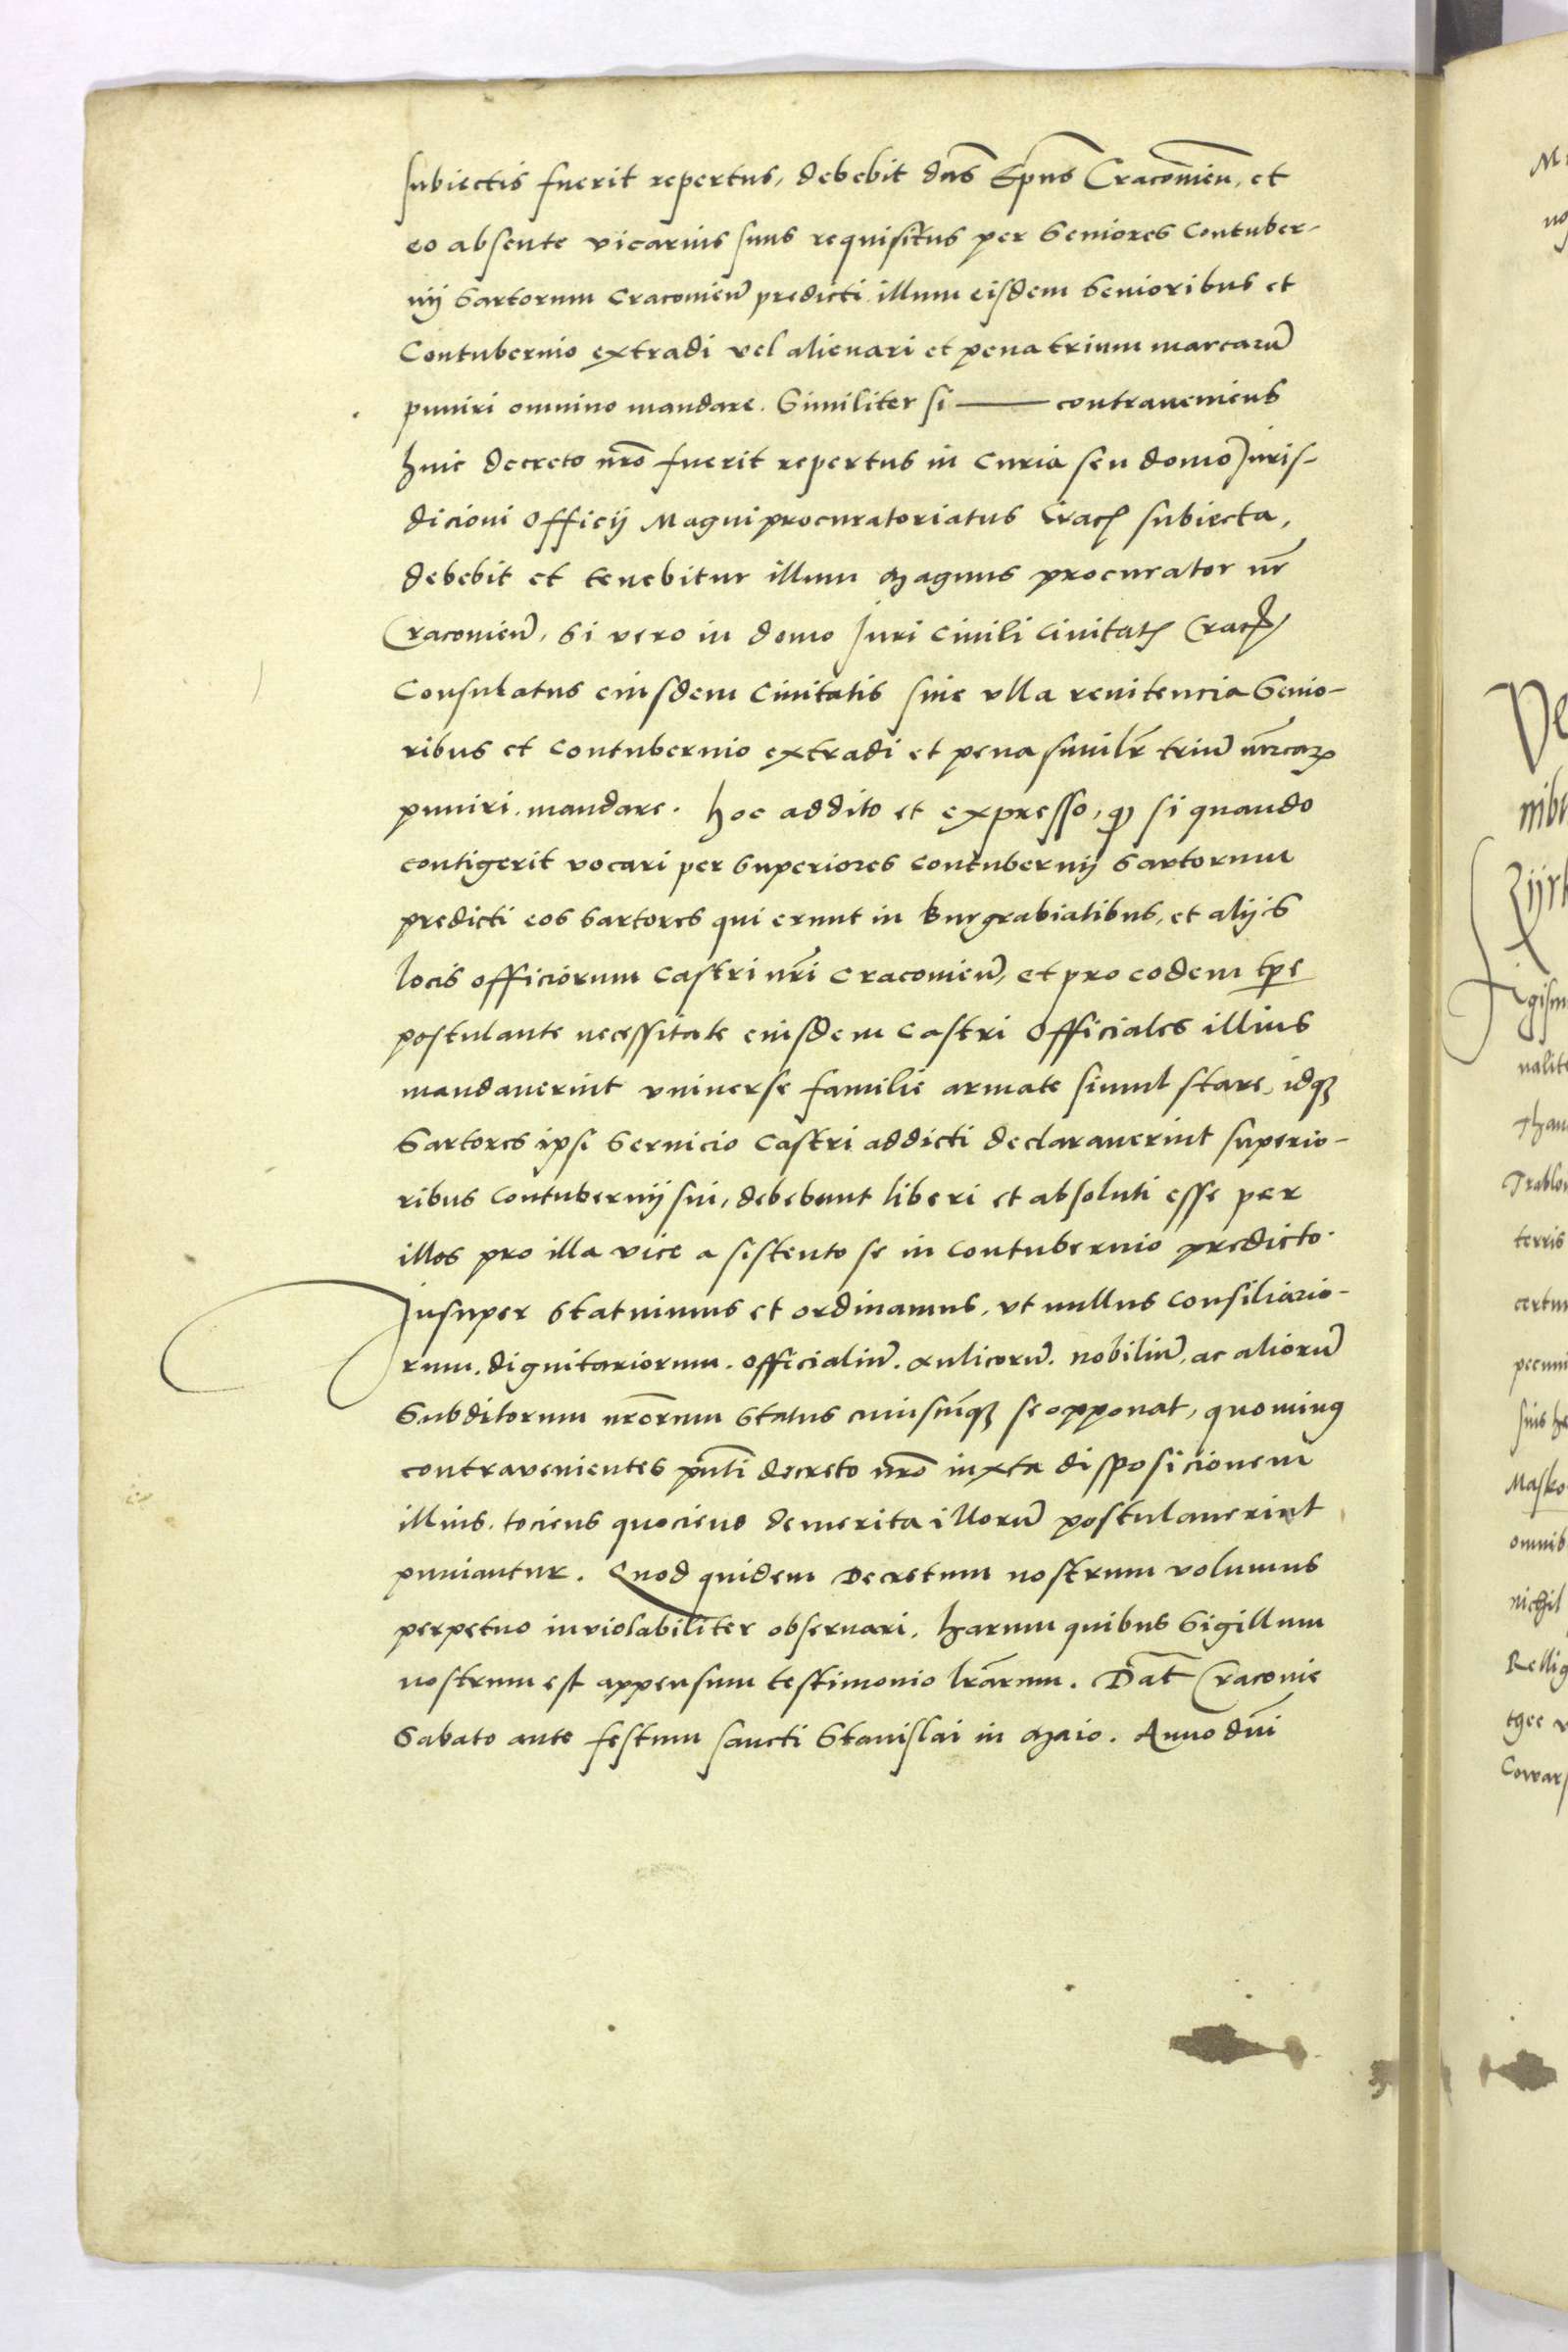 subiectis fuerit repertus, debebit dns Epus Cracouien, et
eo absente vicarius suus requisitus per Seniores Contuber-
nij Sartorum Cracouien predicti illum eisdem Senioribus et
Contubernio extradi vel alienari et pena trium marcaru
puniri omnino mandare. Similiter si — contraueniens
huic decreto nro fuerit repertus in Curia seu domo Juris-
dicioni Officij Magni procuratoriatus Crac subiecta,
debebit et tenebitur illum Magnus procurator nr
Cracouien, Si vero in domo Juri Ciuili Ciuitat Crac
Consulatus eiusdem Ciuitatis sine vlla renitencia Senio-
ribus et Contubernio extradi et pena similr triu mrcar
puniri mandare. Hoc addito et expresso, q si quando
contigerit vocari per Superiores contubernij Sartorum
predicti eos Sartores qui erunt in Burgrabiatibus, et alijs
locis officiorum Castri nri Cracouien, et pro eodem tpe
postulante necessitate eiusdem Castri Officiales illius
mandauerint vniuerse familie armate simul stare, idq
Sartores ipsi Seruicio Castri addicti declarauerint superio-
ribus Contubernij sui, debebunt liberi et absoluti esse per
illos pro illa vice a sistento se in Contubernio predicto.
Insuper Statuimus et ordinamus, vt nullus Consiliario-
rum, dignitariorum, Officialiu, Aulicoru, nobiliu, ac alioru
Subditorum nrorum Status cuiuscuq se opponat, quominus
contravenientes pnti decreto nro iuxta disposicionem
illius, tociens quociens demerita illoru postulauerint
puniantur. Quod quidem Decretum nostrum volumus
perpetuo inviolabiliter obseruari, Harum quibus Sigillum
nostrum est appensum testimonio lrarum. Dat Cracouie
Sabato ante festum sancti Stanislai in Maio. Anno dni